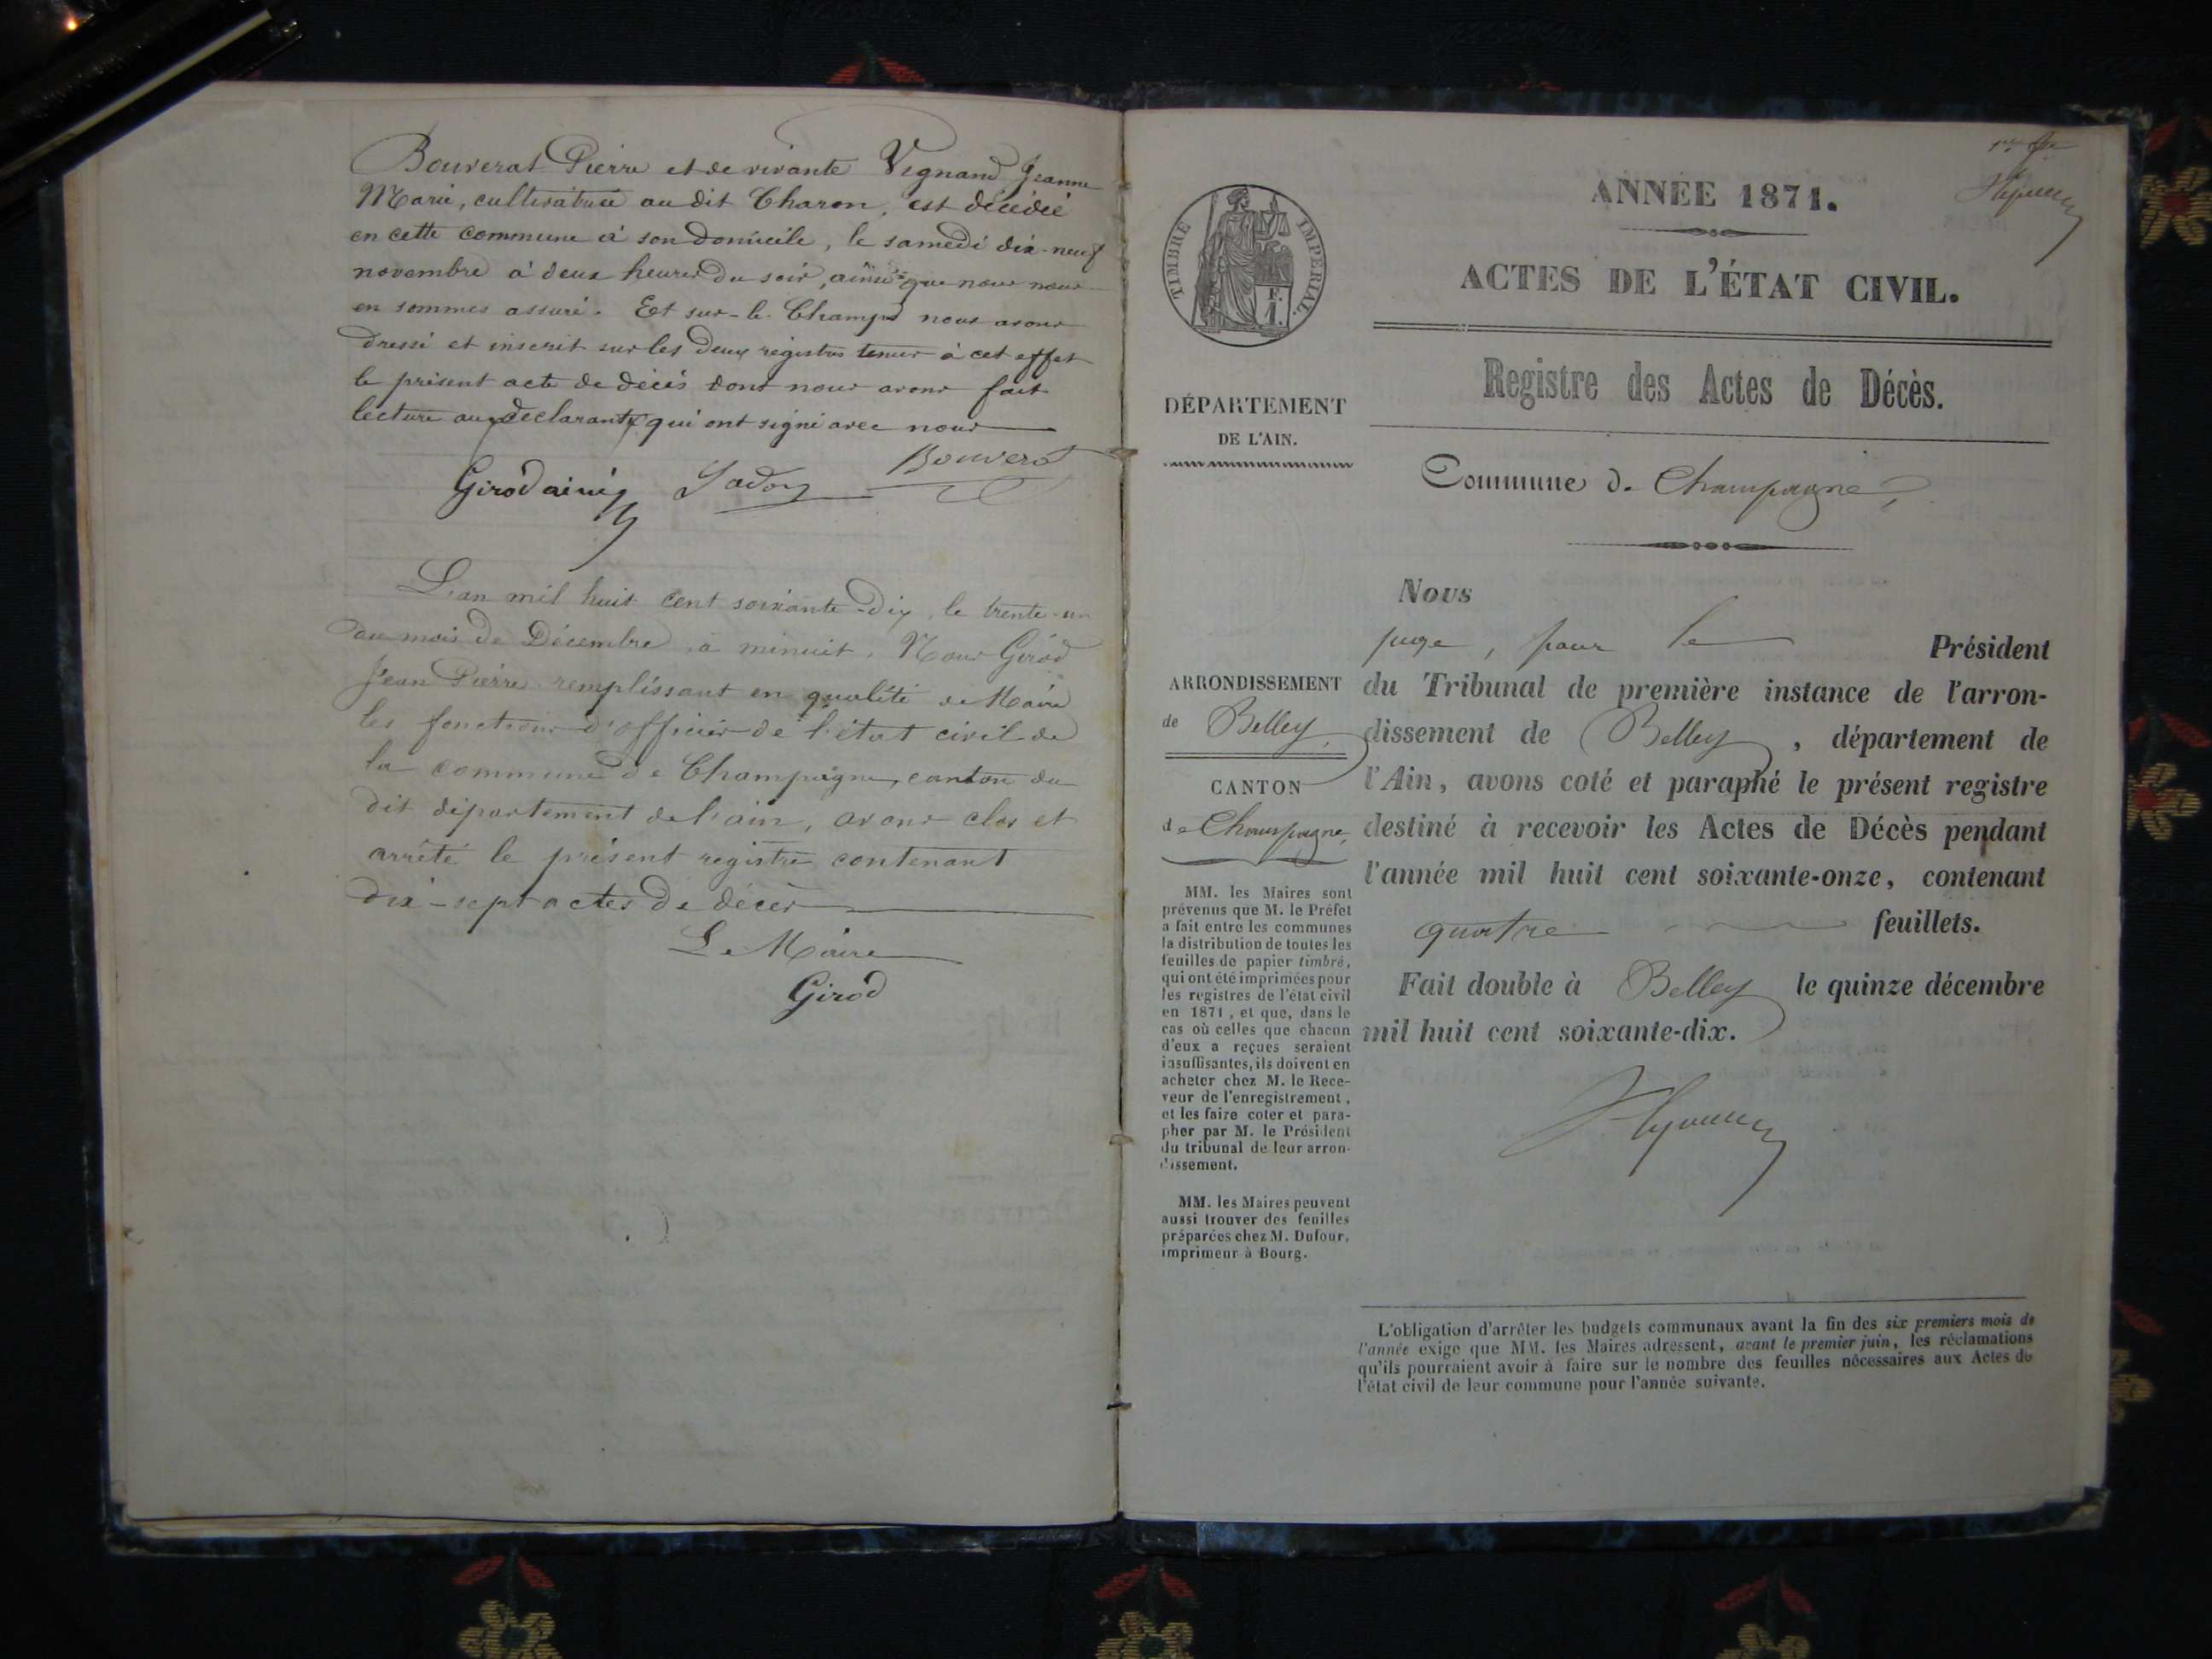 Bouverat Pierre et de vivante Vignand Jeanne
Marie, cultivatrice au dit Charon, est décédée
en cette commune à son domicile, le samedi dix-neuf
novembre à deux heures du soir, ainsi que nous nous
en sommes assuré. Et sur-le-Champ nous avons
dressé et inscrit sur les deux registres tenus à cet effet
le présent acte de décès dont nous avons fait
lecture aux déclarants qui ont signé avec nous
Girod ainé Jadon Bouverat
L'an mil huit cent soixante-dix, le trente-un
du mois de Décembre, à minuit, Nous Girod
Jean Pierre remplissant en qualité de Maire
les fonctions d'officier de l'état civil de
la commune de Champagne, canton du
dit département de l'ain, avons clos et
arrêté le présent registre contenant
dix-sept actes de décès
Le Maire
Girod
TIMBRE IMPÉRIAL.
F.
1.
DÉPARTEMENT
DE L'AIN.
ARRONDISSEMENT
de Belley,
CANTON
de Champagne,
MM. les Maires sont
prévenus que M. le Préfet
a fait entre les communes
la distribution de toutes les
feuilles de papier timbré,
qui ont été imprimées pour
les registres de l'état civil
en 1871, et que, dans le
cas où celles que chacun
d'eux a reçues seraient
insuffisantes, ils doivent en
acheter chez M. le Rece-
veur de l'enregistrement,
et les faire coter et para-
pher par M. le Président
du tribunal de leur arron-
dissement.
MM. les Maires peuvent
aussi trouver des feuilles
préparées chez M. Dufour,
imprimeur à Bourg.
ANNÉE 1871.
ACTES DE L'ÉTAT CIVIL.
Registre des Actes de Décès.
Commune de Champagne,
Nous
juge, pour le Président
du Tribunal de première instance de l'arron-
dissement de Belley, département de
l'Ain, avons coté et paraphé le présent registre
destiné à recevoir les Actes de Décès pendant
l'année mil huit cent soixante-onze, contenant
quatre feuillets.
Fait double à Belley le quinze décembre
mil huit cent soixante-dix.
L'obligation d'arrêter les budgets communaux avant la fin des six premiers mois de
l'année exige que MM. les Maires adressent, avant le premier juin, les réclamations
qu'ils pourraient avoir à faire sur le nombre des feuilles nécessaires aux Actes de
l'état civil de leur commune pour l'année suivante.